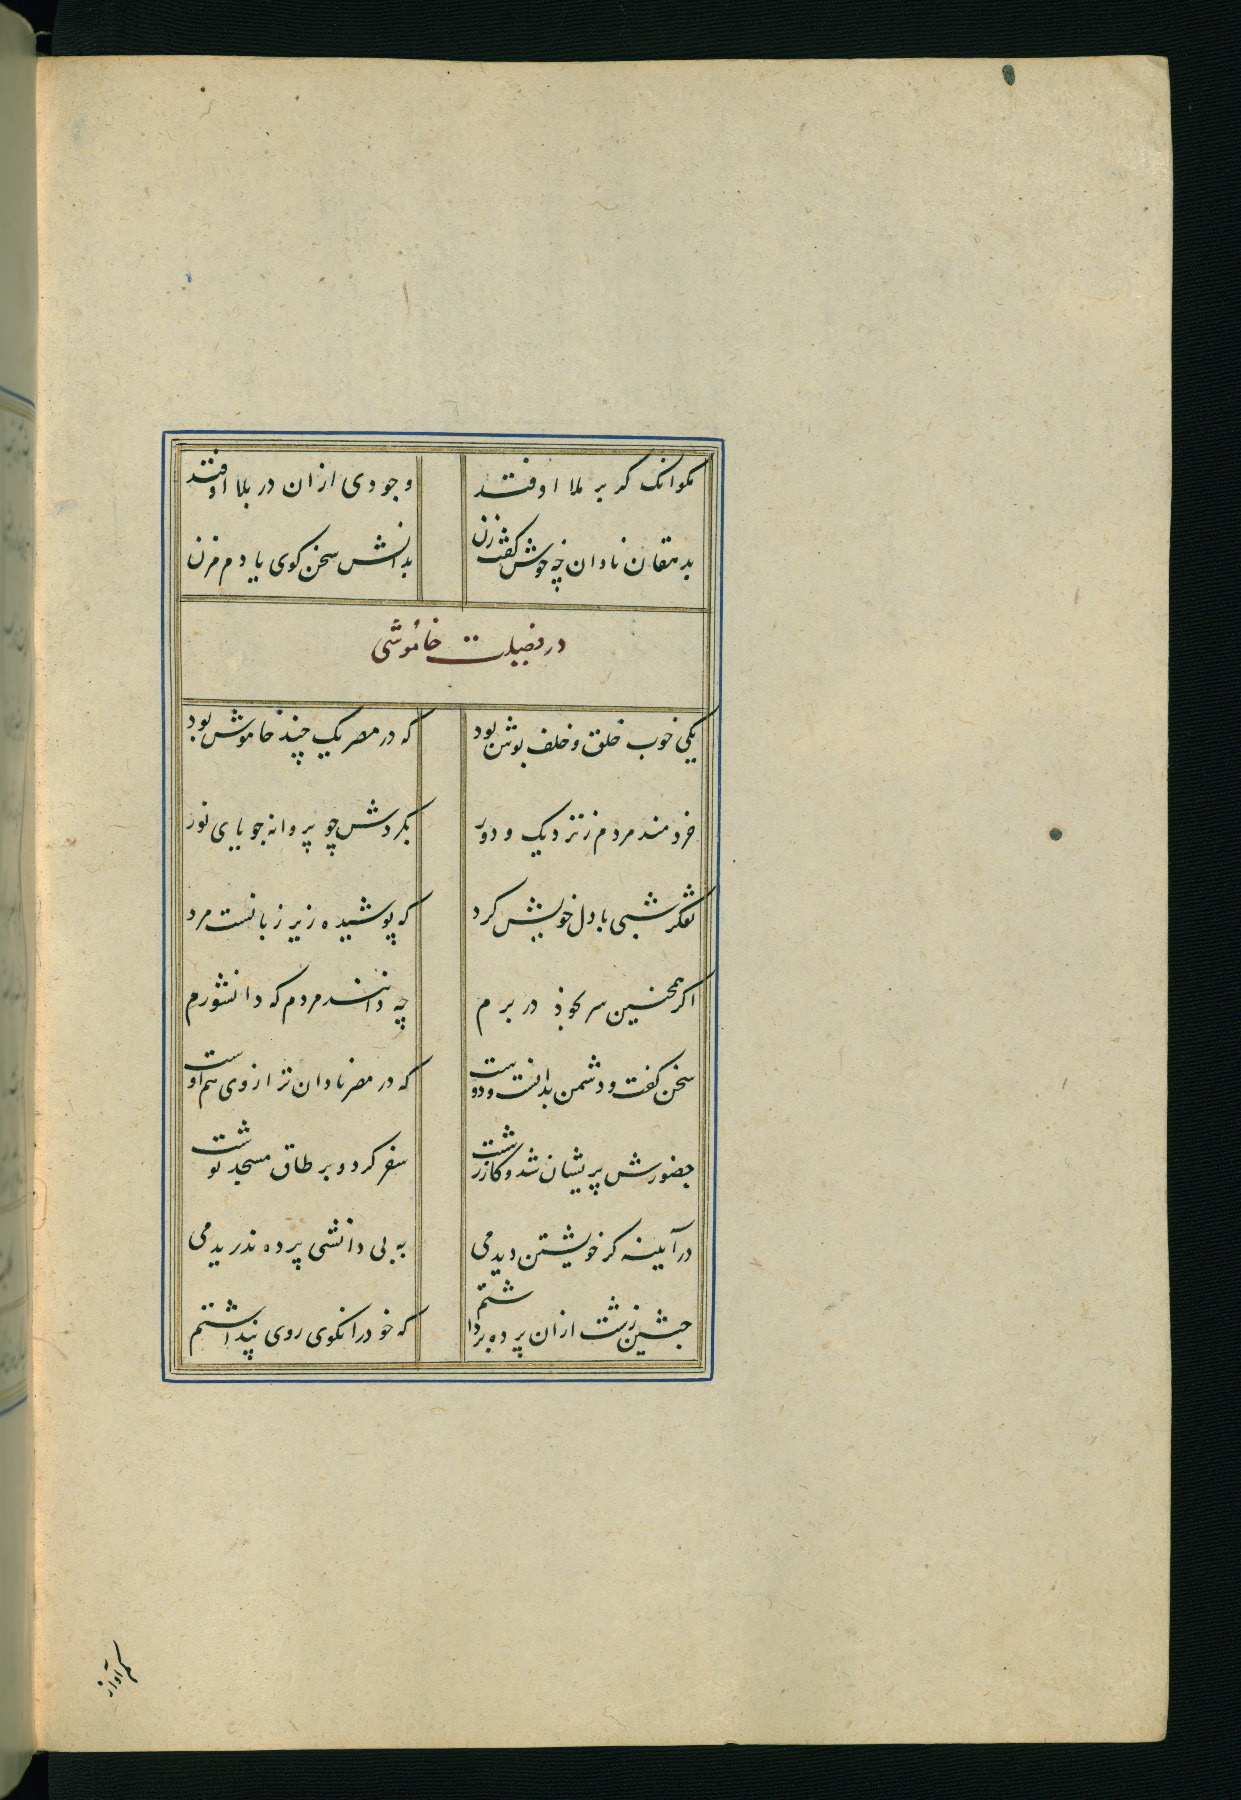 مکو انک کر بر ملا اوفتد وجودی ازان در بلا اوفتد
بدهقان نادان چه خوش گفت زن بدانش سخن کوی یا دم مزن
در فضیلت خاموشی
یکی خوب خلق و خلف پوش بود که در مصر یک چند خاموش بود
خردمند مردم ز نزدیک و دور بکردش چو پروانه جویای نور
تفکر شبی با دل خویش کرد که پوشیده زیر زبانست مرد
اکر همچنین سر بخود در برم چه دانند مردم که دانشورم
سخن کفت و دشمن بدانست و دوست که در مصر نادان تر از وی هم اوست
حضورش پریشان شد و کار زشت سفر کرد و بر طاق مسجد نوشت
در آیینه کر خویشتن دیدمی به بی دانشی پرده ندریدمی
چنین زشت ازان پرده برداشتم که خود را نکوی روی پنداشتم
کم آواز